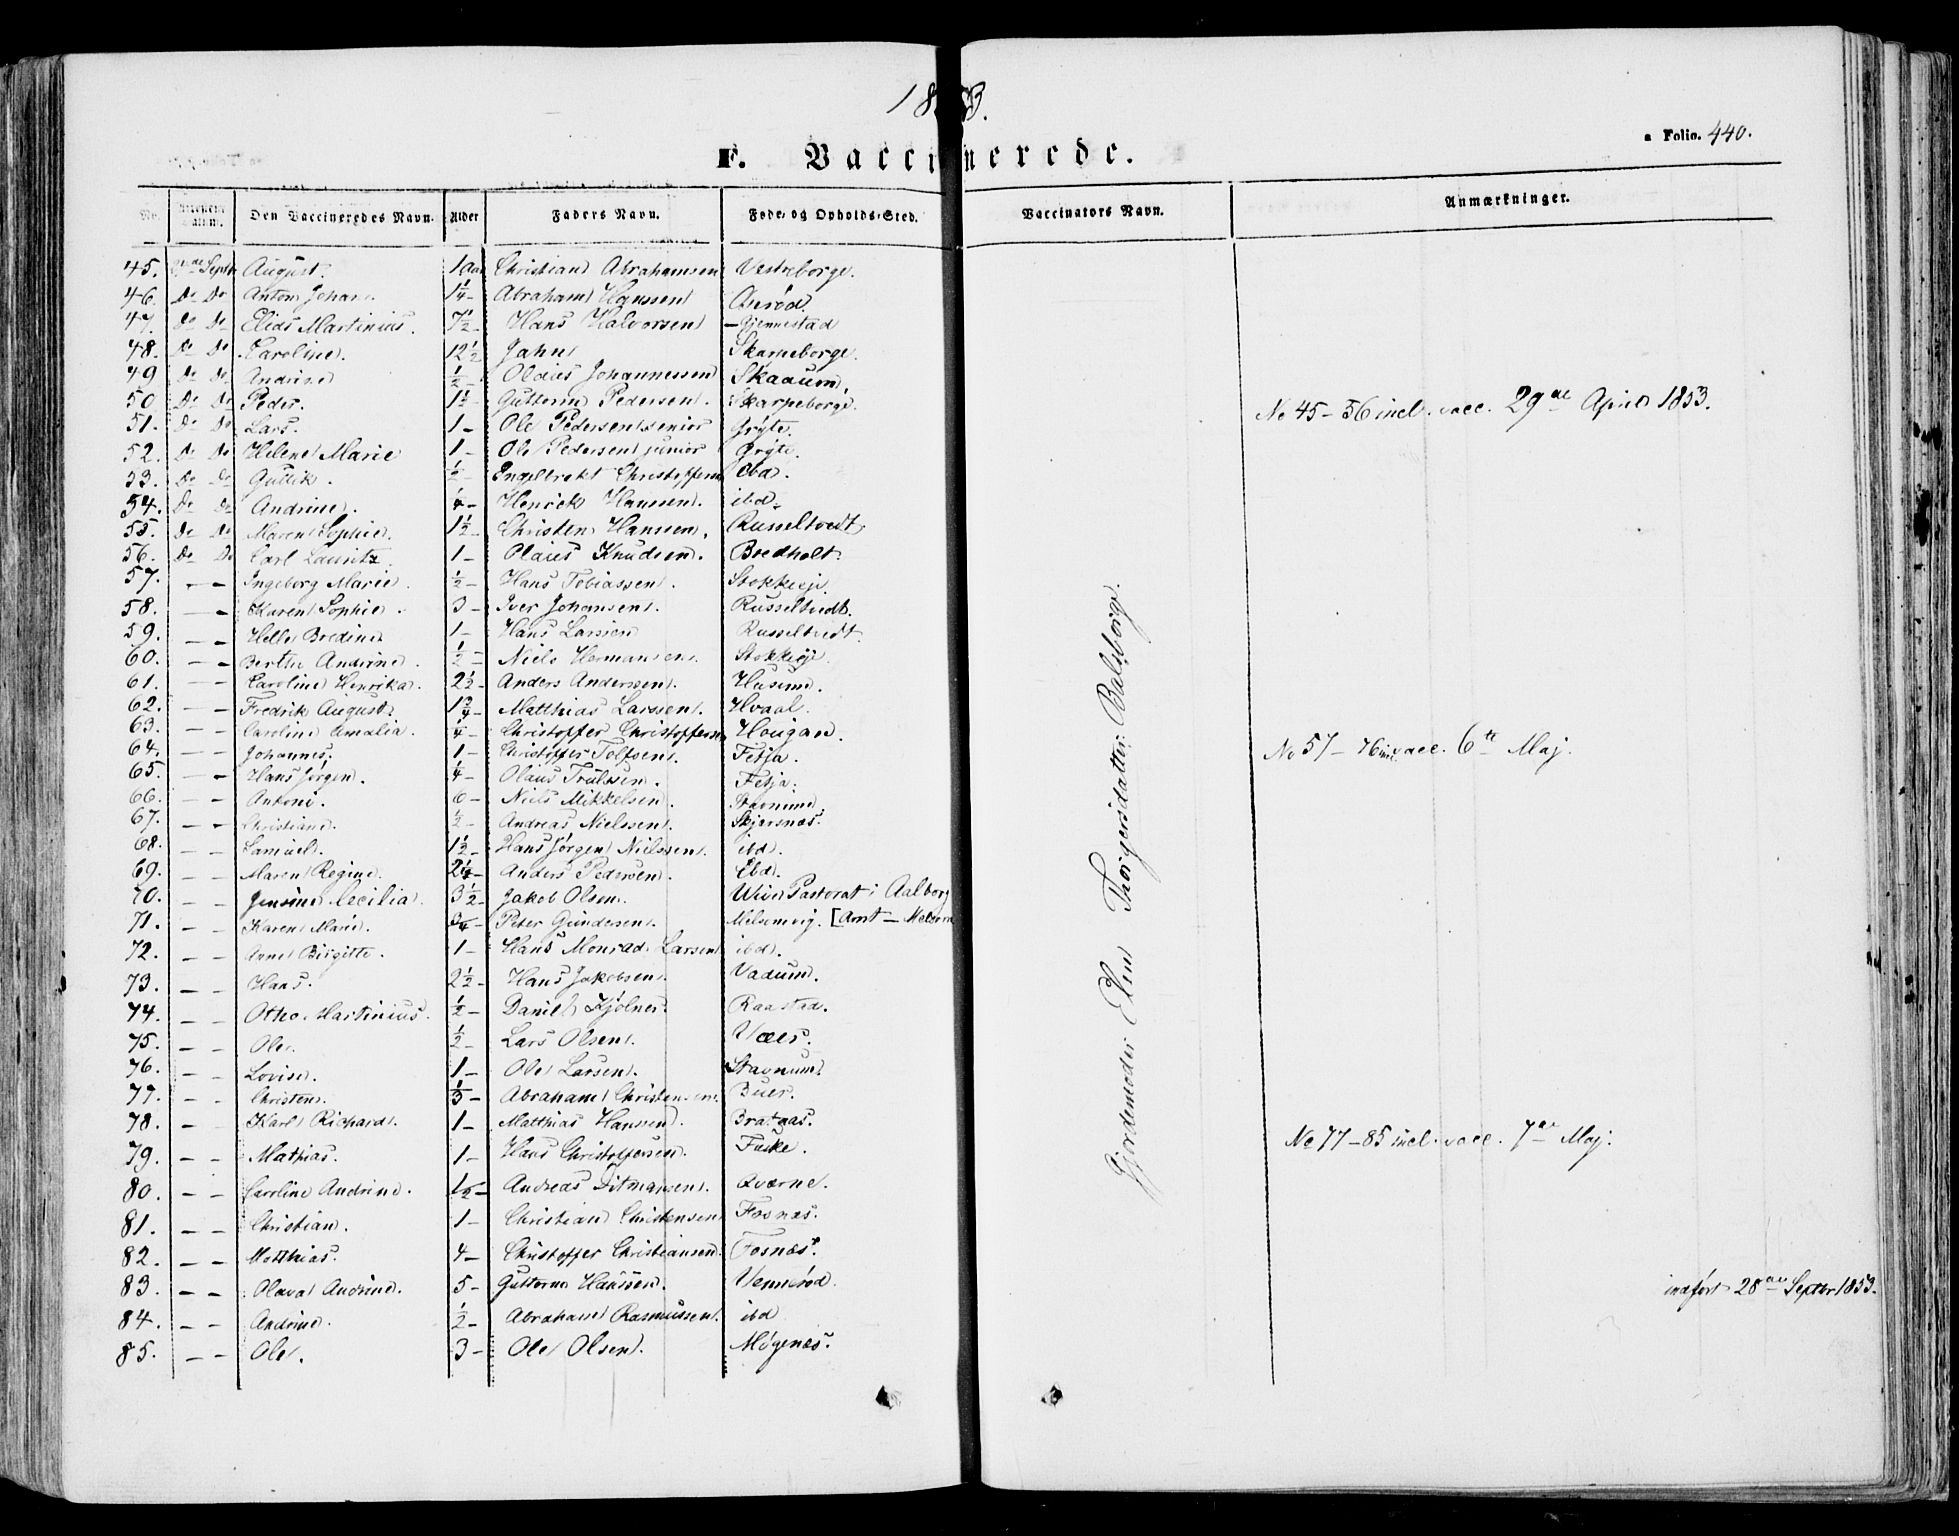 1853.
a Folio. 440.
F. Vaccinerede.
No. Den Vaccineredes Navn. Alder Faders Navn. Føde- og Opholds-Sted. Vaccinators Navn. Anmærkninger.
45. Septr August. 1 Aar Christian Abrahamsen Vestreborge.
46. Do Do Anton Johan. 1¼ – Abraham Hanssen Aurød.
47. Do Do Elias Martinius. 7½ – Hans Halvorsen Gjennestad
48. Do Do Caroline. 12½ Jahn Skarpeborge.
49 Do Do Andrine ½ – Olaus Johannessen Skaaum.
50 Do Do Peder. 1½ – Guttorm Pedersen. Skarpeborge.
51. Do Do Lars. 1 – Ole Pedersen senior Gryte.
52. Do Do Helene Marie 1 – Ole Pedersen junior Gryte.
53. Do Do Gullik. ½ – Engelbrekt Christoffersen ibd.
54. Do Do Andrine. ¼ – Henrick Hanssen. ibd.
55. Do Do Maren Sophie. 1½ – Christen Hanssen. Russeltvedt
56. Do Do Carl Lauritz 1 – Olaus Knudsen. Bredholt
57. – – Ingeborg Marie. ½ – Hans Tobiassen. Stokkeøje.
58. – – Karen Sophie. 3 – Iver Johansen. Russeltvedt.
59. – – Helle Bredine 1 – Hans Larsen Russeltvedt.
60. – – Berthe Andrine. ½ – Niels Hermansen. Stokkeøje.
61. – – Caroline Henrika. 2½ – Anders Anderssen. Husum.
62. – – Fredrik August. 1¾ – Matthias Larssen. Hvaal.
63. – – Caroline Amalia. ¼ – Christopher Christophersen Hougan.
64. – – Johannes. 1 – Christoffer Tolfsen. Fetja.
65. – – Hans Jørgen. ¼ – Olaus Trulssen. Fetja.
66. – – Antoni. 6 – Niels Mikkelsen. Stavnum.
67. – – Christiane. ½ – Andreas Nielssen. Skjærsnæs.
68. – – Samuel. 1½ – Hans Jørgen Nielssen. ibd.
69. – – Maren Regine. 2¼ – Anders Pedersen. Ebd.
70. – – Jensine Cecilia. 3½ – Jakob Olsen. Pastorat i Aalborg
71. – – Karen Marie. ¾ – Peter Gundersen. Melsomvig. [Amt – Melsom
72. – – Anne Birgitte. 1 – Hans Monrad Larsen ibd.
73. – – Hans. 2½ – Hans Jakobsen. Vadum.
74. – – Otho Martinius. ½ – Daniel Kjølner. Raastad.
75. – – Ole. ½ – Lars Olsen. Væer.
76. – – Lovise. 1 – Ole Larsen. Stavnum.
77. – – Christen. ⅓ – Abraham Christensen. Buer.
78. – – Karl Richard. 1 – Matthias Hanssen. Brataas.
79. – – Mathias. 1 – Hans Christoffersen. Fuske.
80. – – Caroline Andrine. 1½ – Andreas Ditmansen. Qværne.
81. – – Christian. 1 – Christian Christensen Fosnæs.
82. – – Matthias. 4 – Christoffer Christiansen. Fosnæs.
83. – – Olava Andrine. 5 – Guttorm Hanssen. Vennerød.
84. – – Andrine. ½ – Abraham Rasmussen. ibd
85. – – Ole. 3 – Ole Olsen. Møgenæs.
Gjordemoder Elen Thorgersdatter Balsborge.
No 45 – 56 incl. vacc. 29de April 1853.
No 57 – 76 incl. vacc. 6te Maj.
No 77 – 85 incl. vacc. 7de Maj.
indført 28de Septbr 1853.